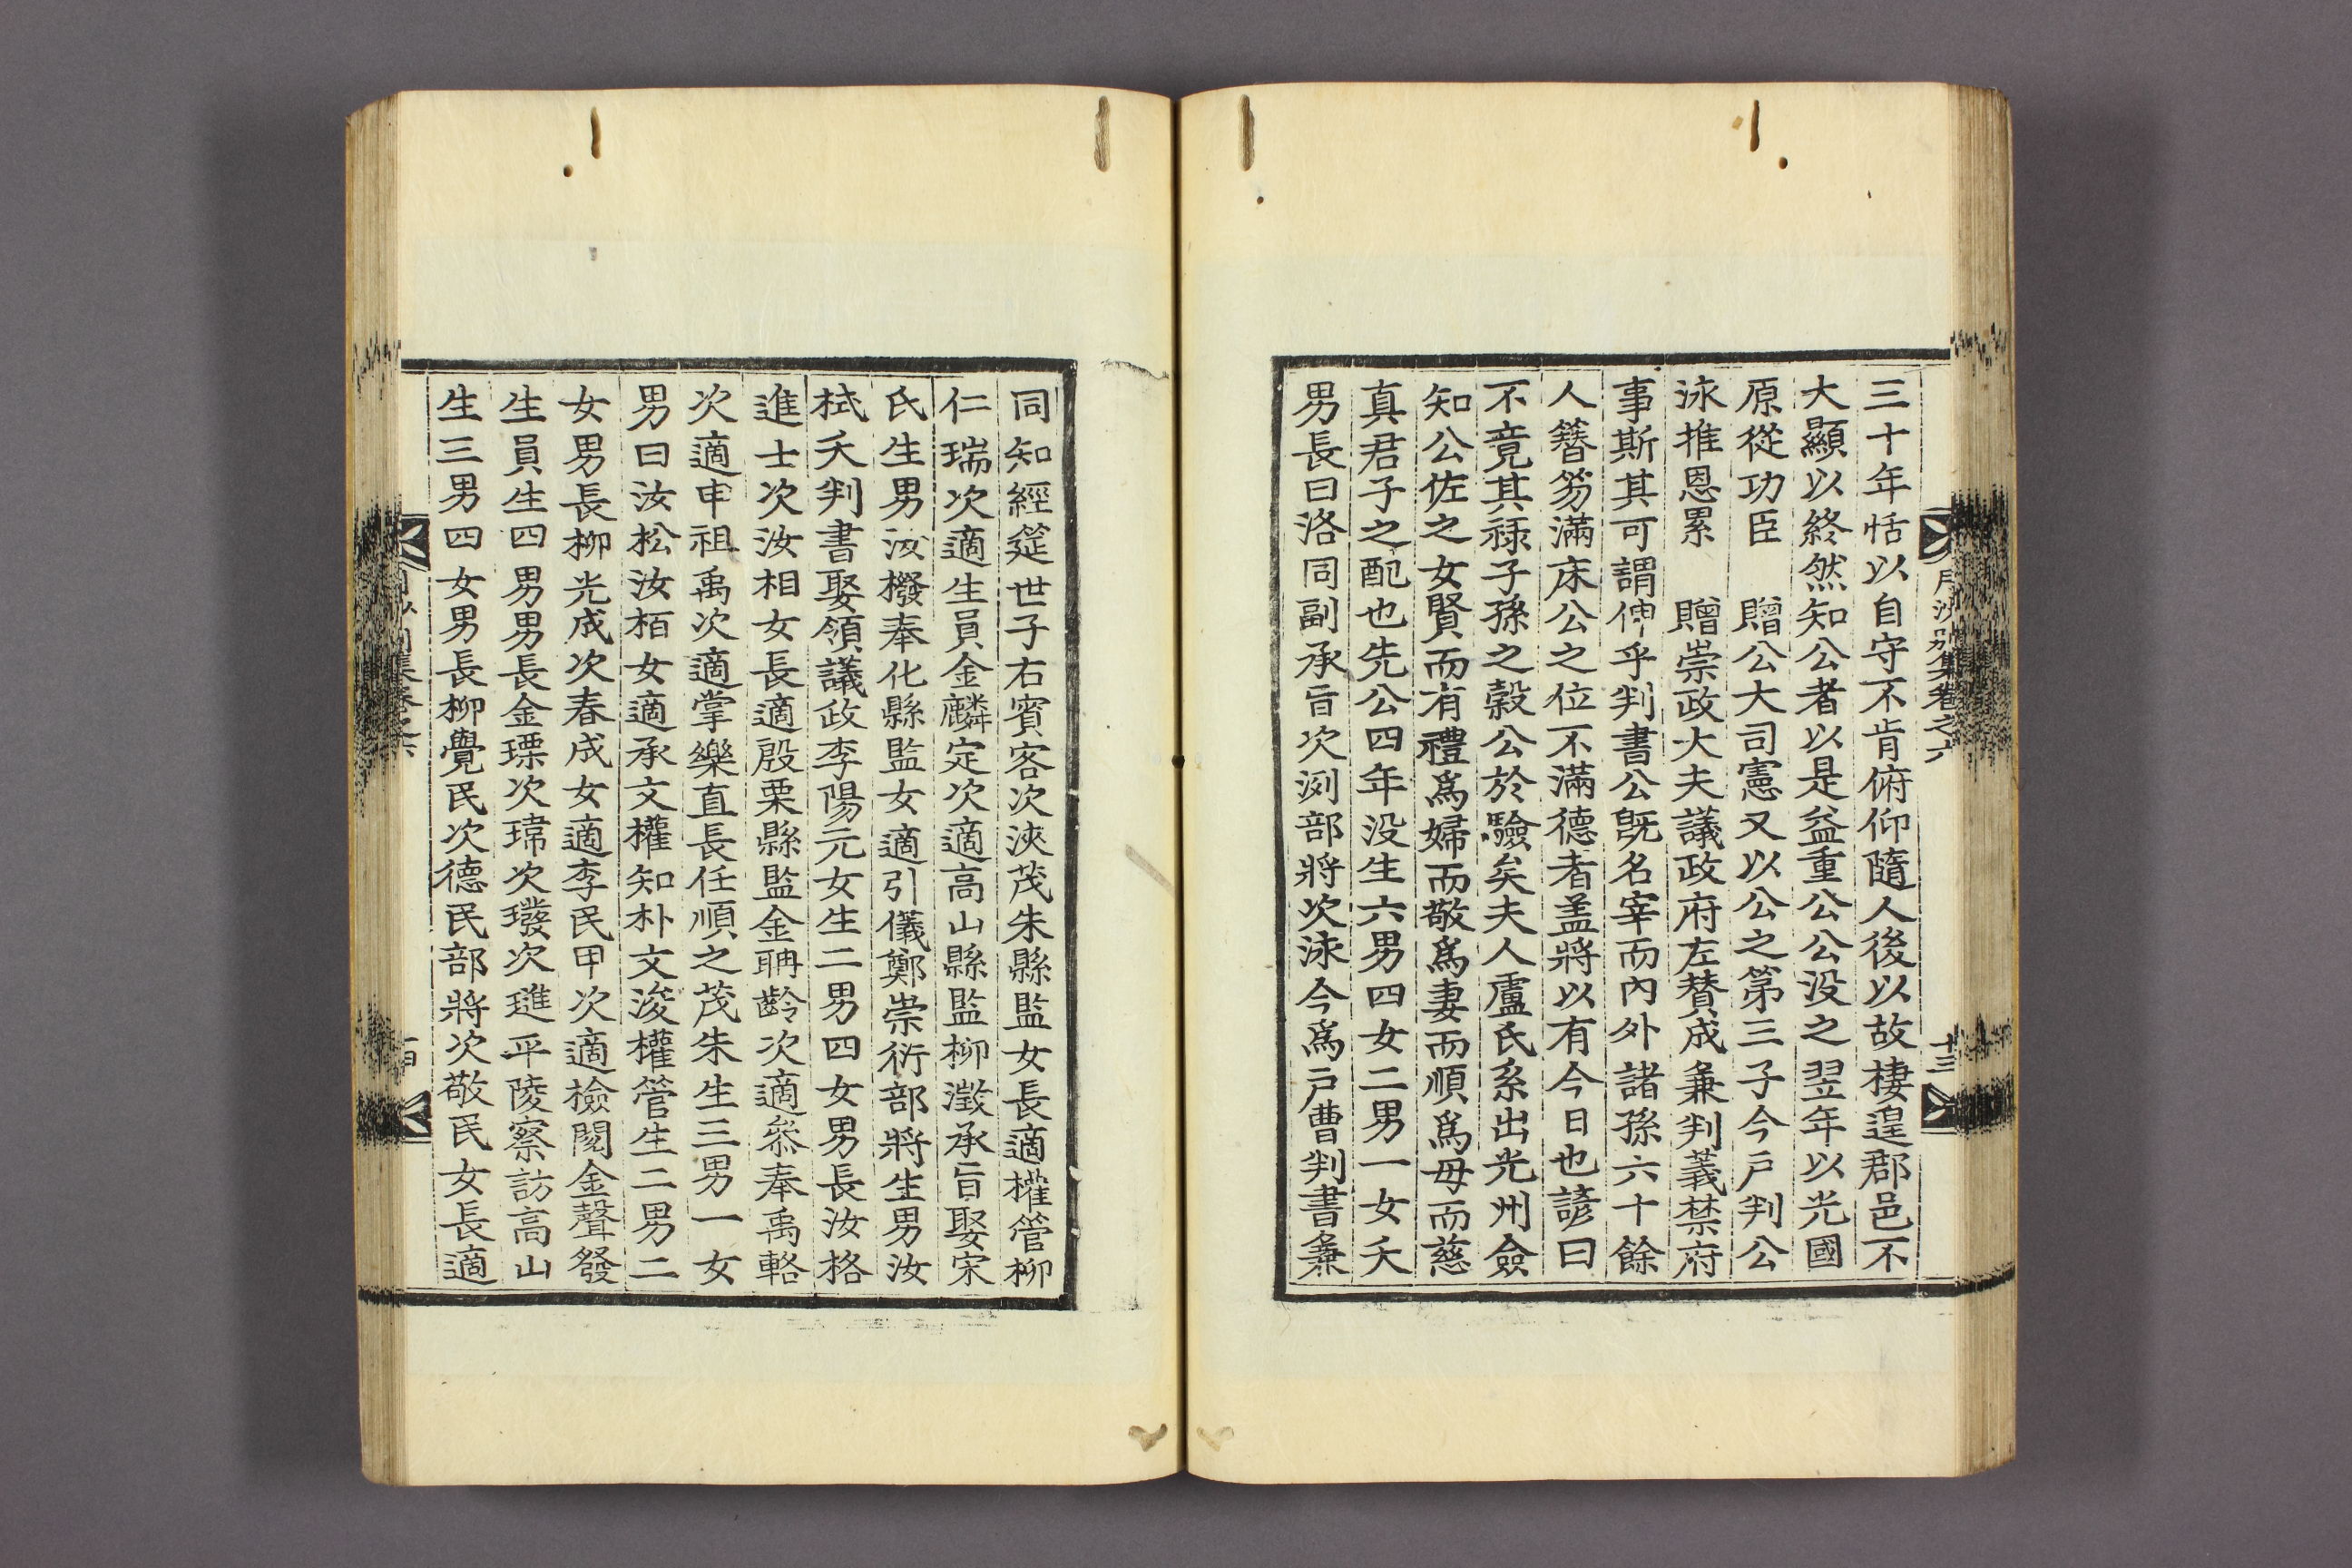 月沙別集卷之六
十三
三十年恬以自守不肯俯仰隨人後以故棲遑郡邑不
大顯以終然知公者以是益重公公沒之翌年以光國
原從功臣 贈公大司憲又以公之第三子今戶判公
泳推恩累 贈崇政大夫議政府左贊成兼判義禁府
事斯其可謂伸乎判書公旣名宰而內外諸孫六十餘
人簪笏滿床公之位不滿德者盖將以有今日也諺曰
不竟其祿子孫之穀公於驗矣夫人盧氏系出光州僉
知公佐之女賢而有禮爲婦而敬爲妻而順爲母而慈
真君子之配也先公四年没生六男四女二男一女夭
男長曰洛同副承旨次洌部將次泳今爲戶曹判書兼
同知經筵世子右賓客次浹茂朱縣監女長適權管柳
仁瑞次適生員金麟定次適高山縣監柳澂承旨娶宋
氏生男汝橃奉化縣監女適引儀鄭崇衍部將生男汝
栻夭判書娶領議政李陽元女生二男四女男長汝格
進士次汝相女長適殷栗縣監金聃齡次適叅奉禹輅
次適申祖禹次適掌樂直長任順之茂朱生三男一女
男曰汝松汝栢女適承文權知朴文浚權管生二男二
女男長柳光成次春成女適李民甲次適檢閱金聲發
生員生四男男長金瑮次瑋次璲次璡平陵察訪高山
生三男四女男長柳覺民次德民部將次敬民女長適